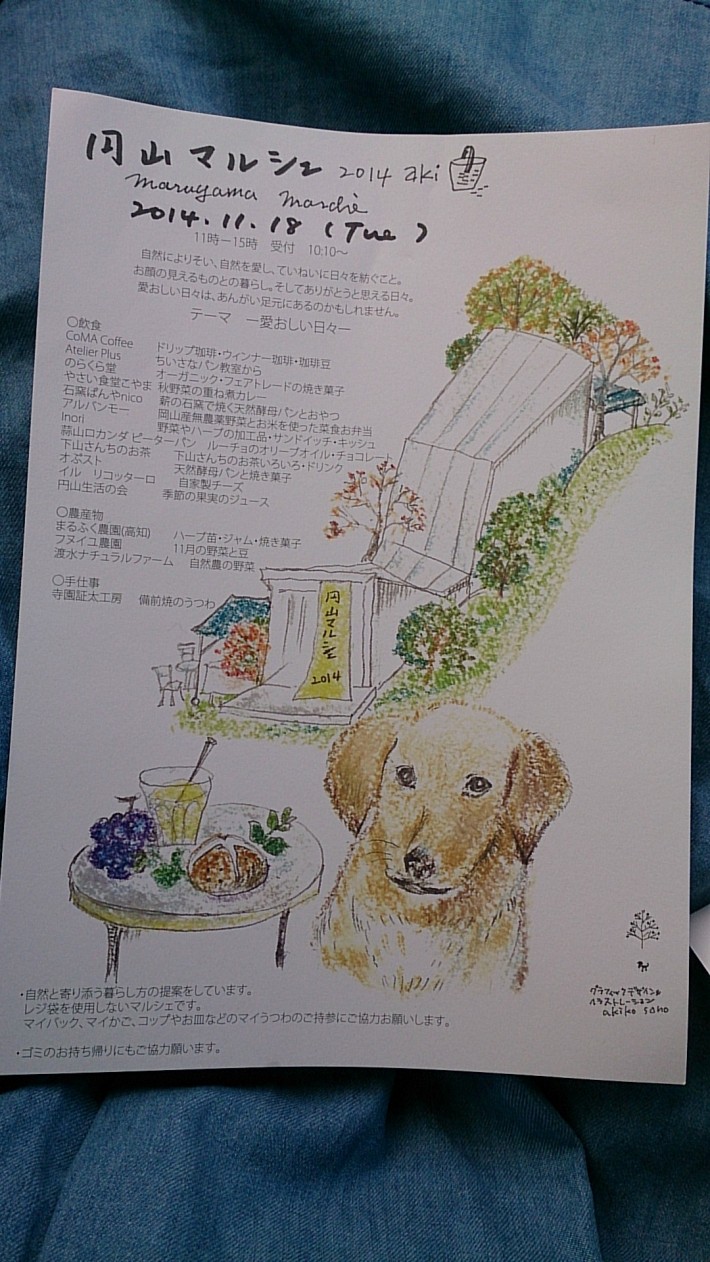 円山マルシェ 2014 aki
maruyama marché
2014.11.18 (Tue)
11時ー15時 受付 10:10～
自然によりそい、自然を愛し、ていねいに日々を紡ぐこと。
お顔の見えるものとの暮らし。そしてありがとうと思える日々。
愛おしい日々は、あんがい足元にあるのかもしれません。
テーマ ー愛おしい日々ー
〇飲食
CoMA Coffee ドリップ珈琲・ウィンナー珈琲・珈琲豆
Atelier Plus ちいさなパン教室から
のらくら堂 オーガニック・フェアトレードの焼き菓子
やさい食堂こやま 秋野菜の重ね煮カレー
石窯ぱんやnico 薪の石窯で焼く天然酵母パンとおやつ
アルバンモー 岡山産無農薬野菜とお米を使った菜食お弁当
Inori 野菜やハーブの加工品・サンドイッチ・キッシュ
蒜山ロカンダ ピーターパン ルーチョのオリーブオイル・チョコレート
下山さんちのお茶 下山さんちのお茶いろいろ・ドリンク
オぷスト 天然酵母パンと焼き菓子
イル リコッターロ 自家製チーズ
円山生活の会 季節の果実のジュース
〇農産物
まるふく農園(高知) ハーブ苗・ジャム・焼き菓子
フヌイユ農園 11月の野菜と豆
渡水ナチュラルファーム 自然農の野菜
〇手仕事
寺園証太工房 備前焼のうつわ
円山マルシェ
2014
・自然と寄り添う暮らし方の提案をしています。
レジ袋を使用しないマルシェです。
マイバック、マイかご、コップやお皿などのマイうつわのご持参にご協力お願いします。
・ゴミのお持ち帰りにもご協力願います。
グラフィックデザイン&
イラストレーション
akiko sano